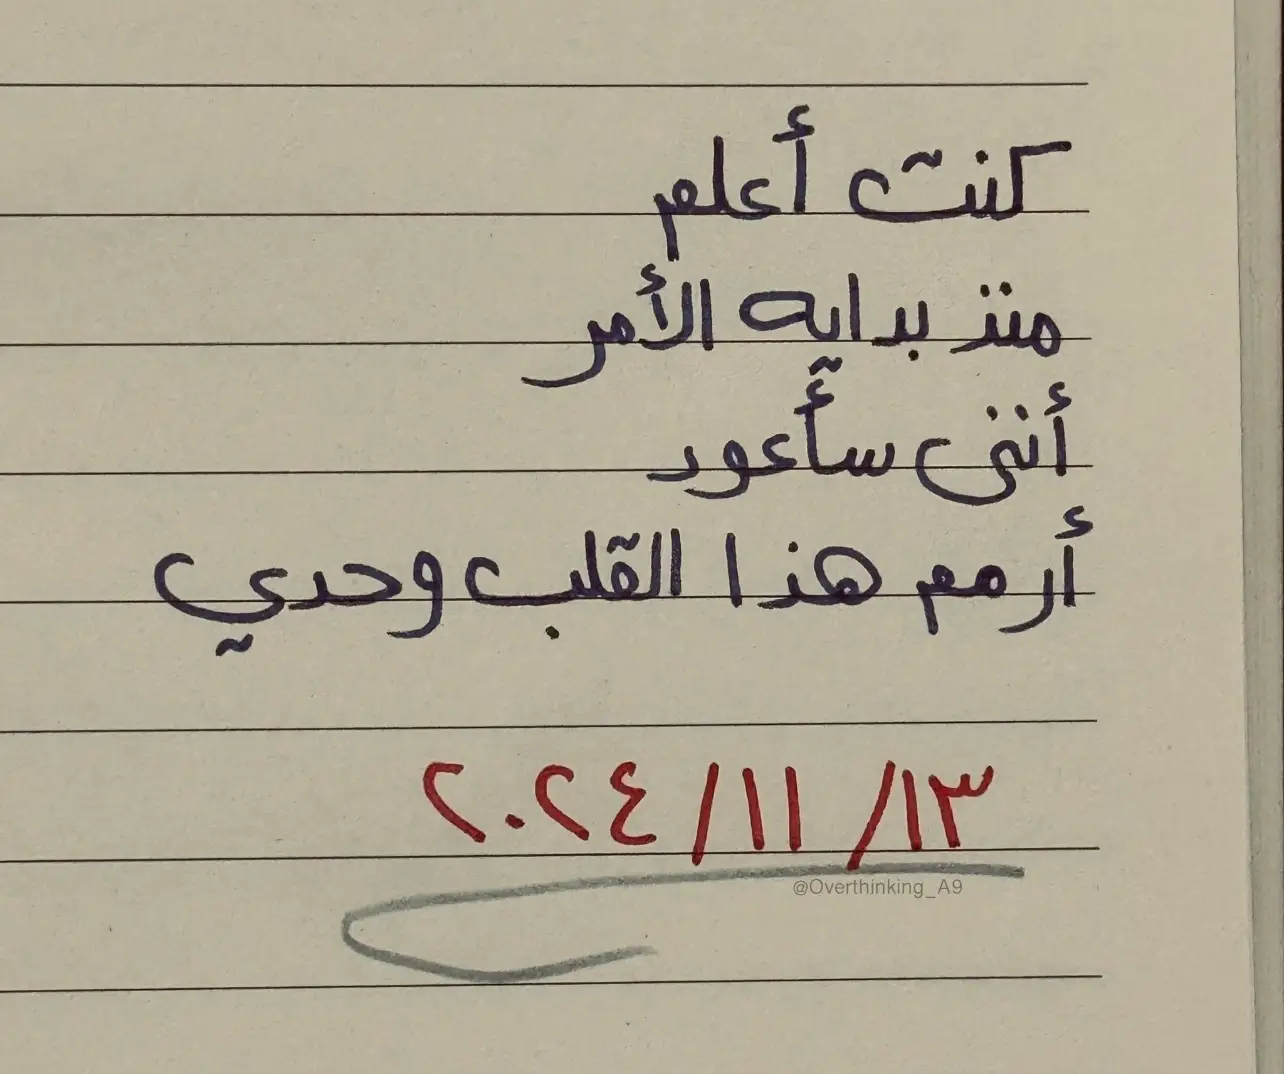 كنت أعلم
منذ بدايه الأمر
أنني سأعود
أرمم هذا القلب وحدي
١٣/ ١١/ ٢٠٢٤
@Overthinking_A9